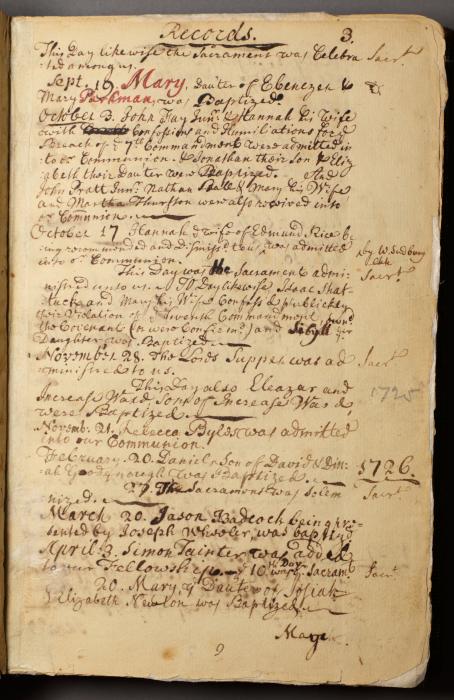 Records. 3.
This Day likewise the Sacrament was Celebra Sacrt.
ted among us.
Sept. 19. Mary, Dauter of Ebenezer &
Mary Parkman, was Baptized
October 3. John Fay Junr. & Hannah his Wife
with Confessions and Humiliations for ye
Breach of ye 7th Commandment were admitted in
to or Communion. & Jonathan their Son & Eliz
abeth their Dauter were Baptized. And
John Pratt Junr. Nathan Ball & Mary his Wife
and Martha Thurston were also received into
or Comunion.
October 17 Hannah ye Wife of Edmund Rice be
ing recommended and dismiss'd to us, was admitted by W. Sudbury
into or Communion. Chh.
This Day was the Sacrament admi- Sacrt.
nistred unto us. Day likewise Isaac Shat-
tuck and Mary his Wife Confess'd publickly
their Violation of ye Seventh Commandment,
the Covenant and Sibyll their
Daughter was Baptized.
November 28. The Lords Supper was ad Sacrt.
ministred to us.
This Day also Eleazar and 1725
Increase Ward, Sons of Increase Ward,
were Baptized.
Novemb. 21. Rebecca Byles was admitted
into our Communion.
February. 20. Daniel Son of David & Din- 1726.
ah Goodynough was Baptized.
27. The Sacrament was solem Sacrt.
nized.
March 20. Jason Badcock being pre-
sented by Joseph Wheeler, was baptizd
April 3. Simon Tainter was added
to our Fellowship. 10th Day was ye Sacramt Sacrt
20. Mary, ye Dauter of Josiah
& Elizabeth Newton was Baptized.
May
9